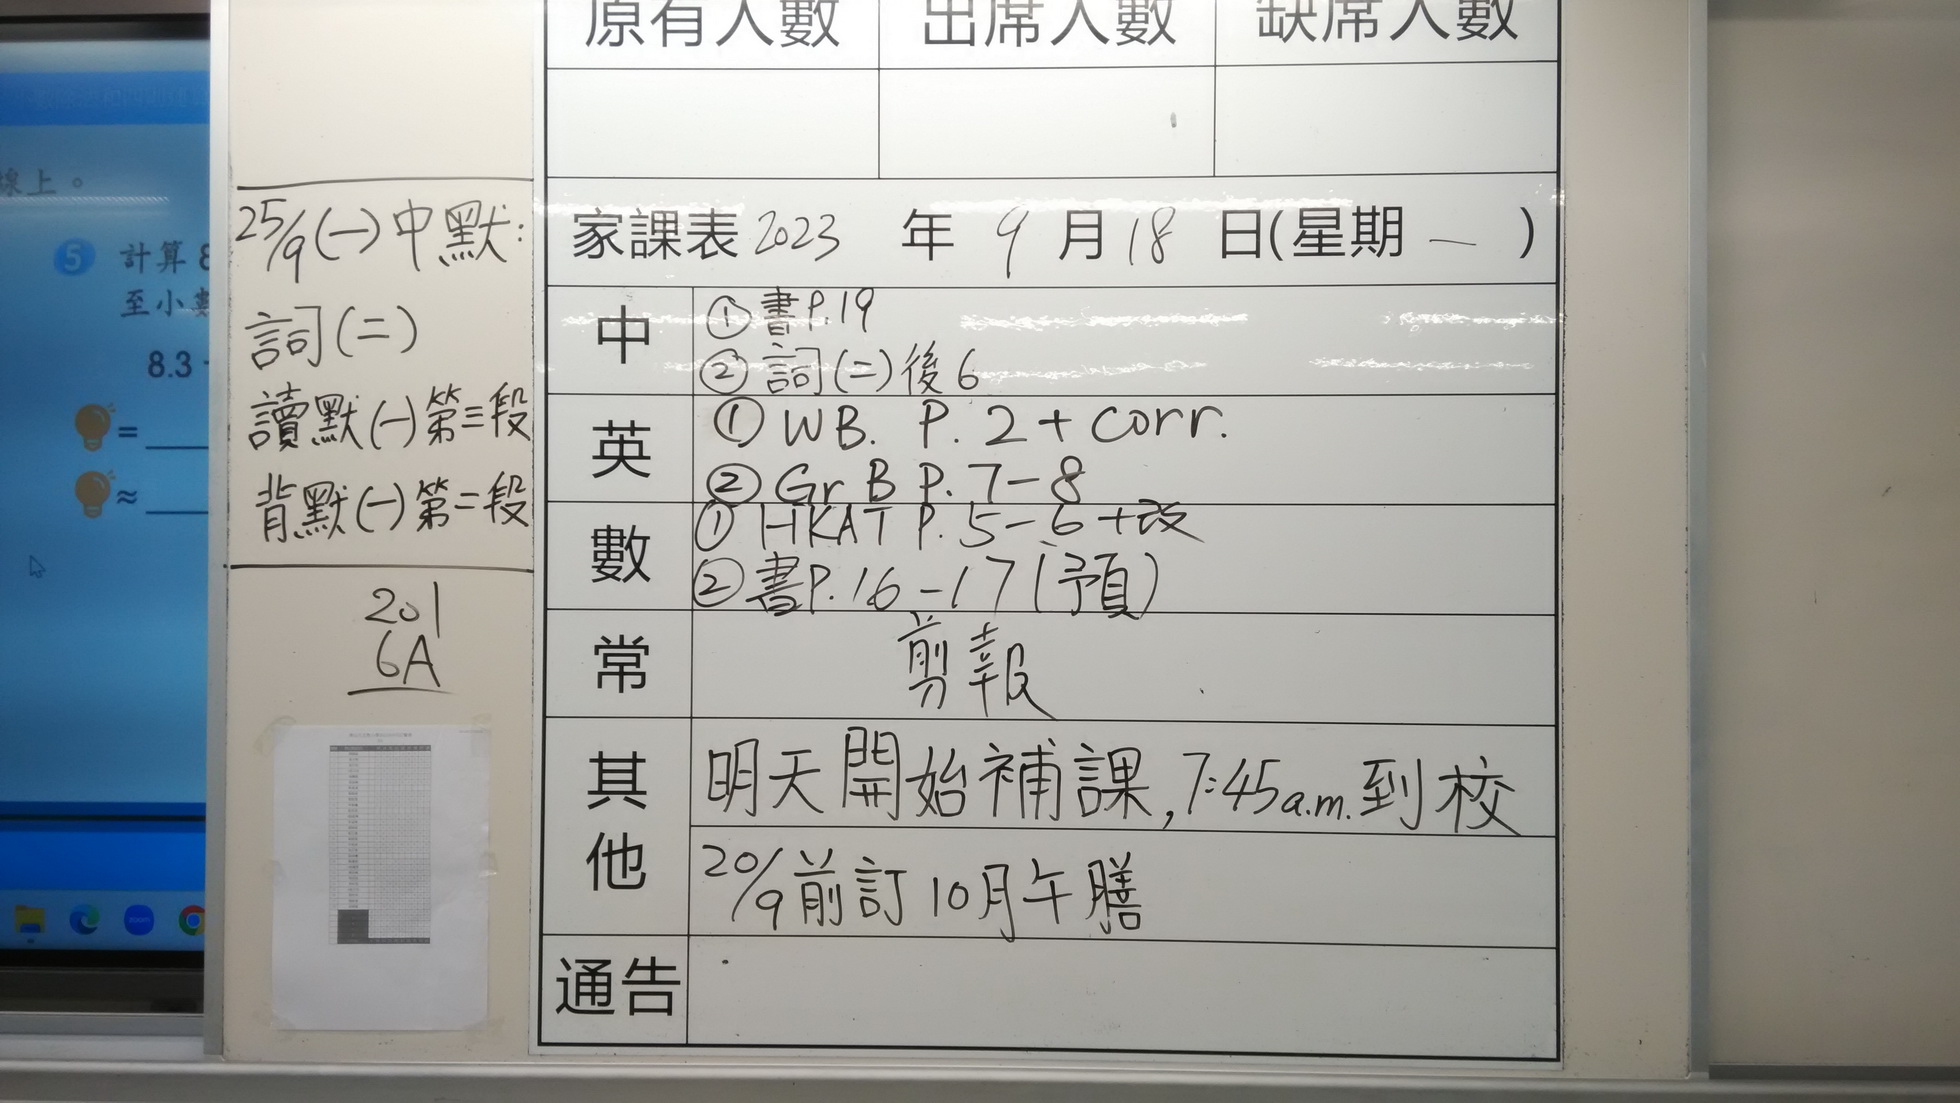 原有人數 出席人數 缺席人數
家課表 2023 年 9 月 18 日(星期 一 )
中 ①書P.19
②詞(二)後6
英 ①WB. P. 2 + corr.
②Gr B P. 7-8
數 ①HKAT P. 5-6 +改
②書P.16-17(預)
常 剪報
其他 明天開始補課,7:45a.m.到校
20/9前訂10月午膳
通告
25/9(一)中默:
詞(二)
讀默(一)第三段
背默(一)第二段
201
6A
線上。
5 計算 8
至小數
8.3
=
≈